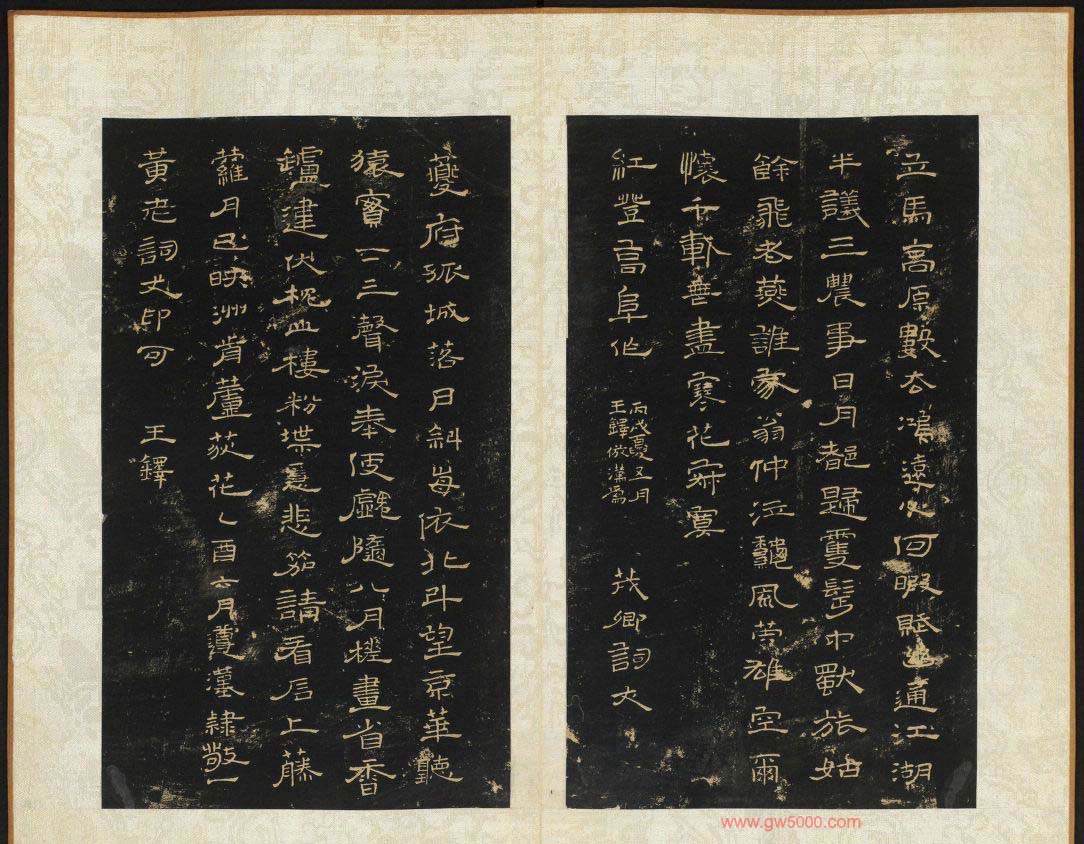 立馬高原數去鴻遠火何暇賦通江湖
半議三農事日月都歸雙髩中獸旅姑
餘飛老燕誰家翁仲泣風雄空爾
懷千斬無盡寒花寂寞
紅登高阜作
丙戌夏五月
王鐸倣漢為
茂卿詞丈
夔府孤城落日斜每依北斗望京華聽
猿實下三聲淚奉使虛隨八月槎畫省香
鑪違伏枕山樓粉堞隱悲笳請看石上藤
蘿月已映洲前蘆荻花乙酉六月摹隸敬
黃老詞丈印可
王鐸
www.gw5000.com